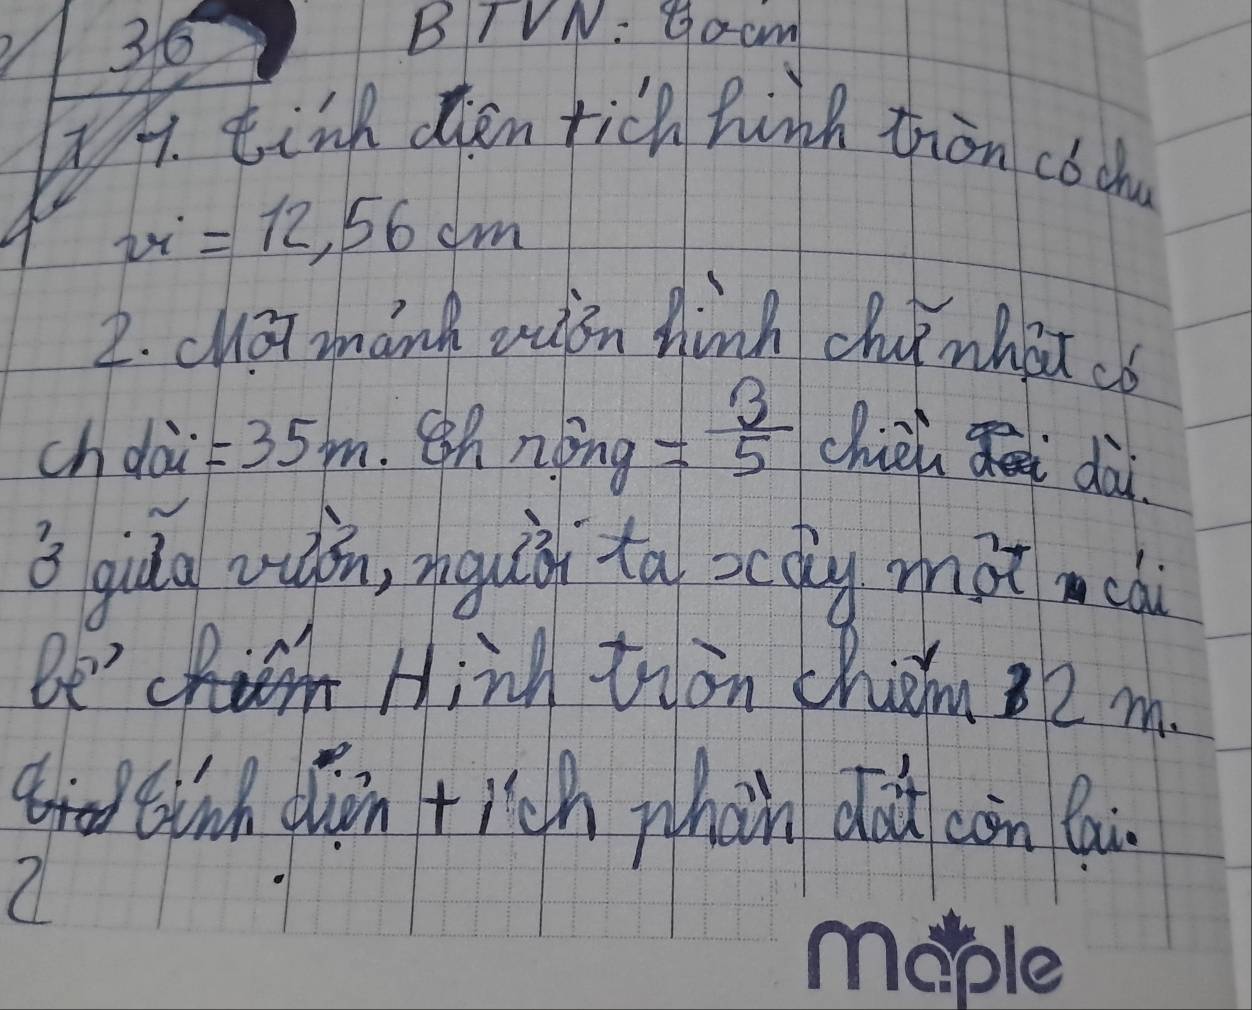 36
BTVN: Toán
1. Tính diện tích hình tròn có chu
vi = 12,56 cm
2. Một mảnh vườn hình chữ nhật có
ch dài = 35 m. Ch rộng = 3/5 chiều dài.
ở giữa vườn, người ta xây một cái
bể Hình tròn chiếm 2 m.
Tính diện tích phần đất còn lại.
2
Maple